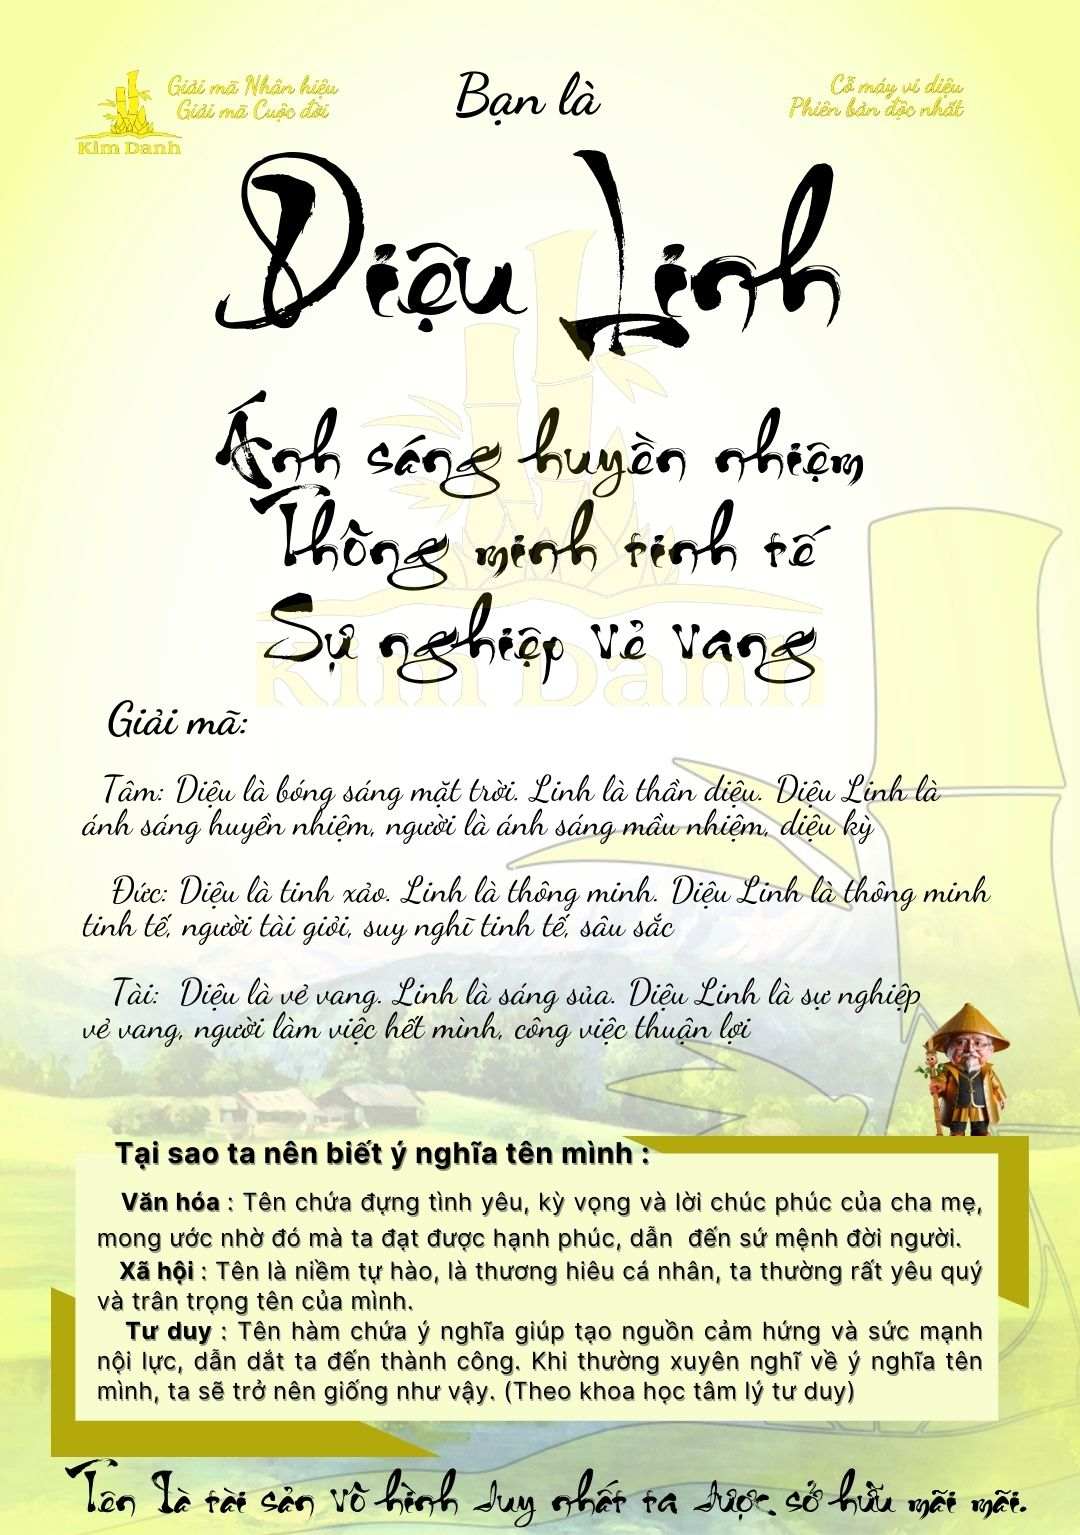 Giải mã Nhân hiệu
Giải mã Cuộc đời
Kim Danh
Bạn là
Cỗ máy vi diệu
Phiên bản độc nhất
Diệu Linh
Ánh sáng huyền nhiệm
Thông minh tinh tế
Sự nghiệp vẻ vang
Kim Danh
Giải mã:
Tâm: Diệu là bóng sáng mặt trời. Linh là thần diệu. Diệu Linh là
ánh sáng huyền nhiệm, người là ánh sáng mầu nhiệm, diệu kỳ
Đức: Diệu là tinh xảo. Linh là thông minh. Diệu Linh là thông minh
tinh tế, người tài giỏi, suy nghĩ tinh tế, sâu sắc
Tài: Diệu là vẻ vang. Linh là sáng sủa. Diệu Linh là sự nghiệp
vẻ vang, người làm việc hết mình, công việc thuận lợi
Tại sao ta nên biết ý nghĩa tên mình :
Văn hóa : Tên chứa đựng tình yêu, kỳ vọng và lời chúc phúc của cha mẹ,
mong ước nhờ đó mà ta đạt được hạnh phúc, dẫn đến sứ mệnh đời người.
Xã hội : Tên là niềm tự hào, là thương hiêu cá nhân, ta thường rất yêu quý
và trân trọng tên của mình.
Tư duy : Tên hàm chứa ý nghĩa giúp tạo nguồn cảm hứng và sức mạnh
nội lực, dẫn dắt ta đến thành công. Khi thường xuyên nghĩ về ý nghĩa tên
mình, ta sẽ trở nên giống như vậy. (Theo khoa học tâm lý tư duy)
Tên là tài sản vô hình duy nhất ta được sở hữu mãi mãi.